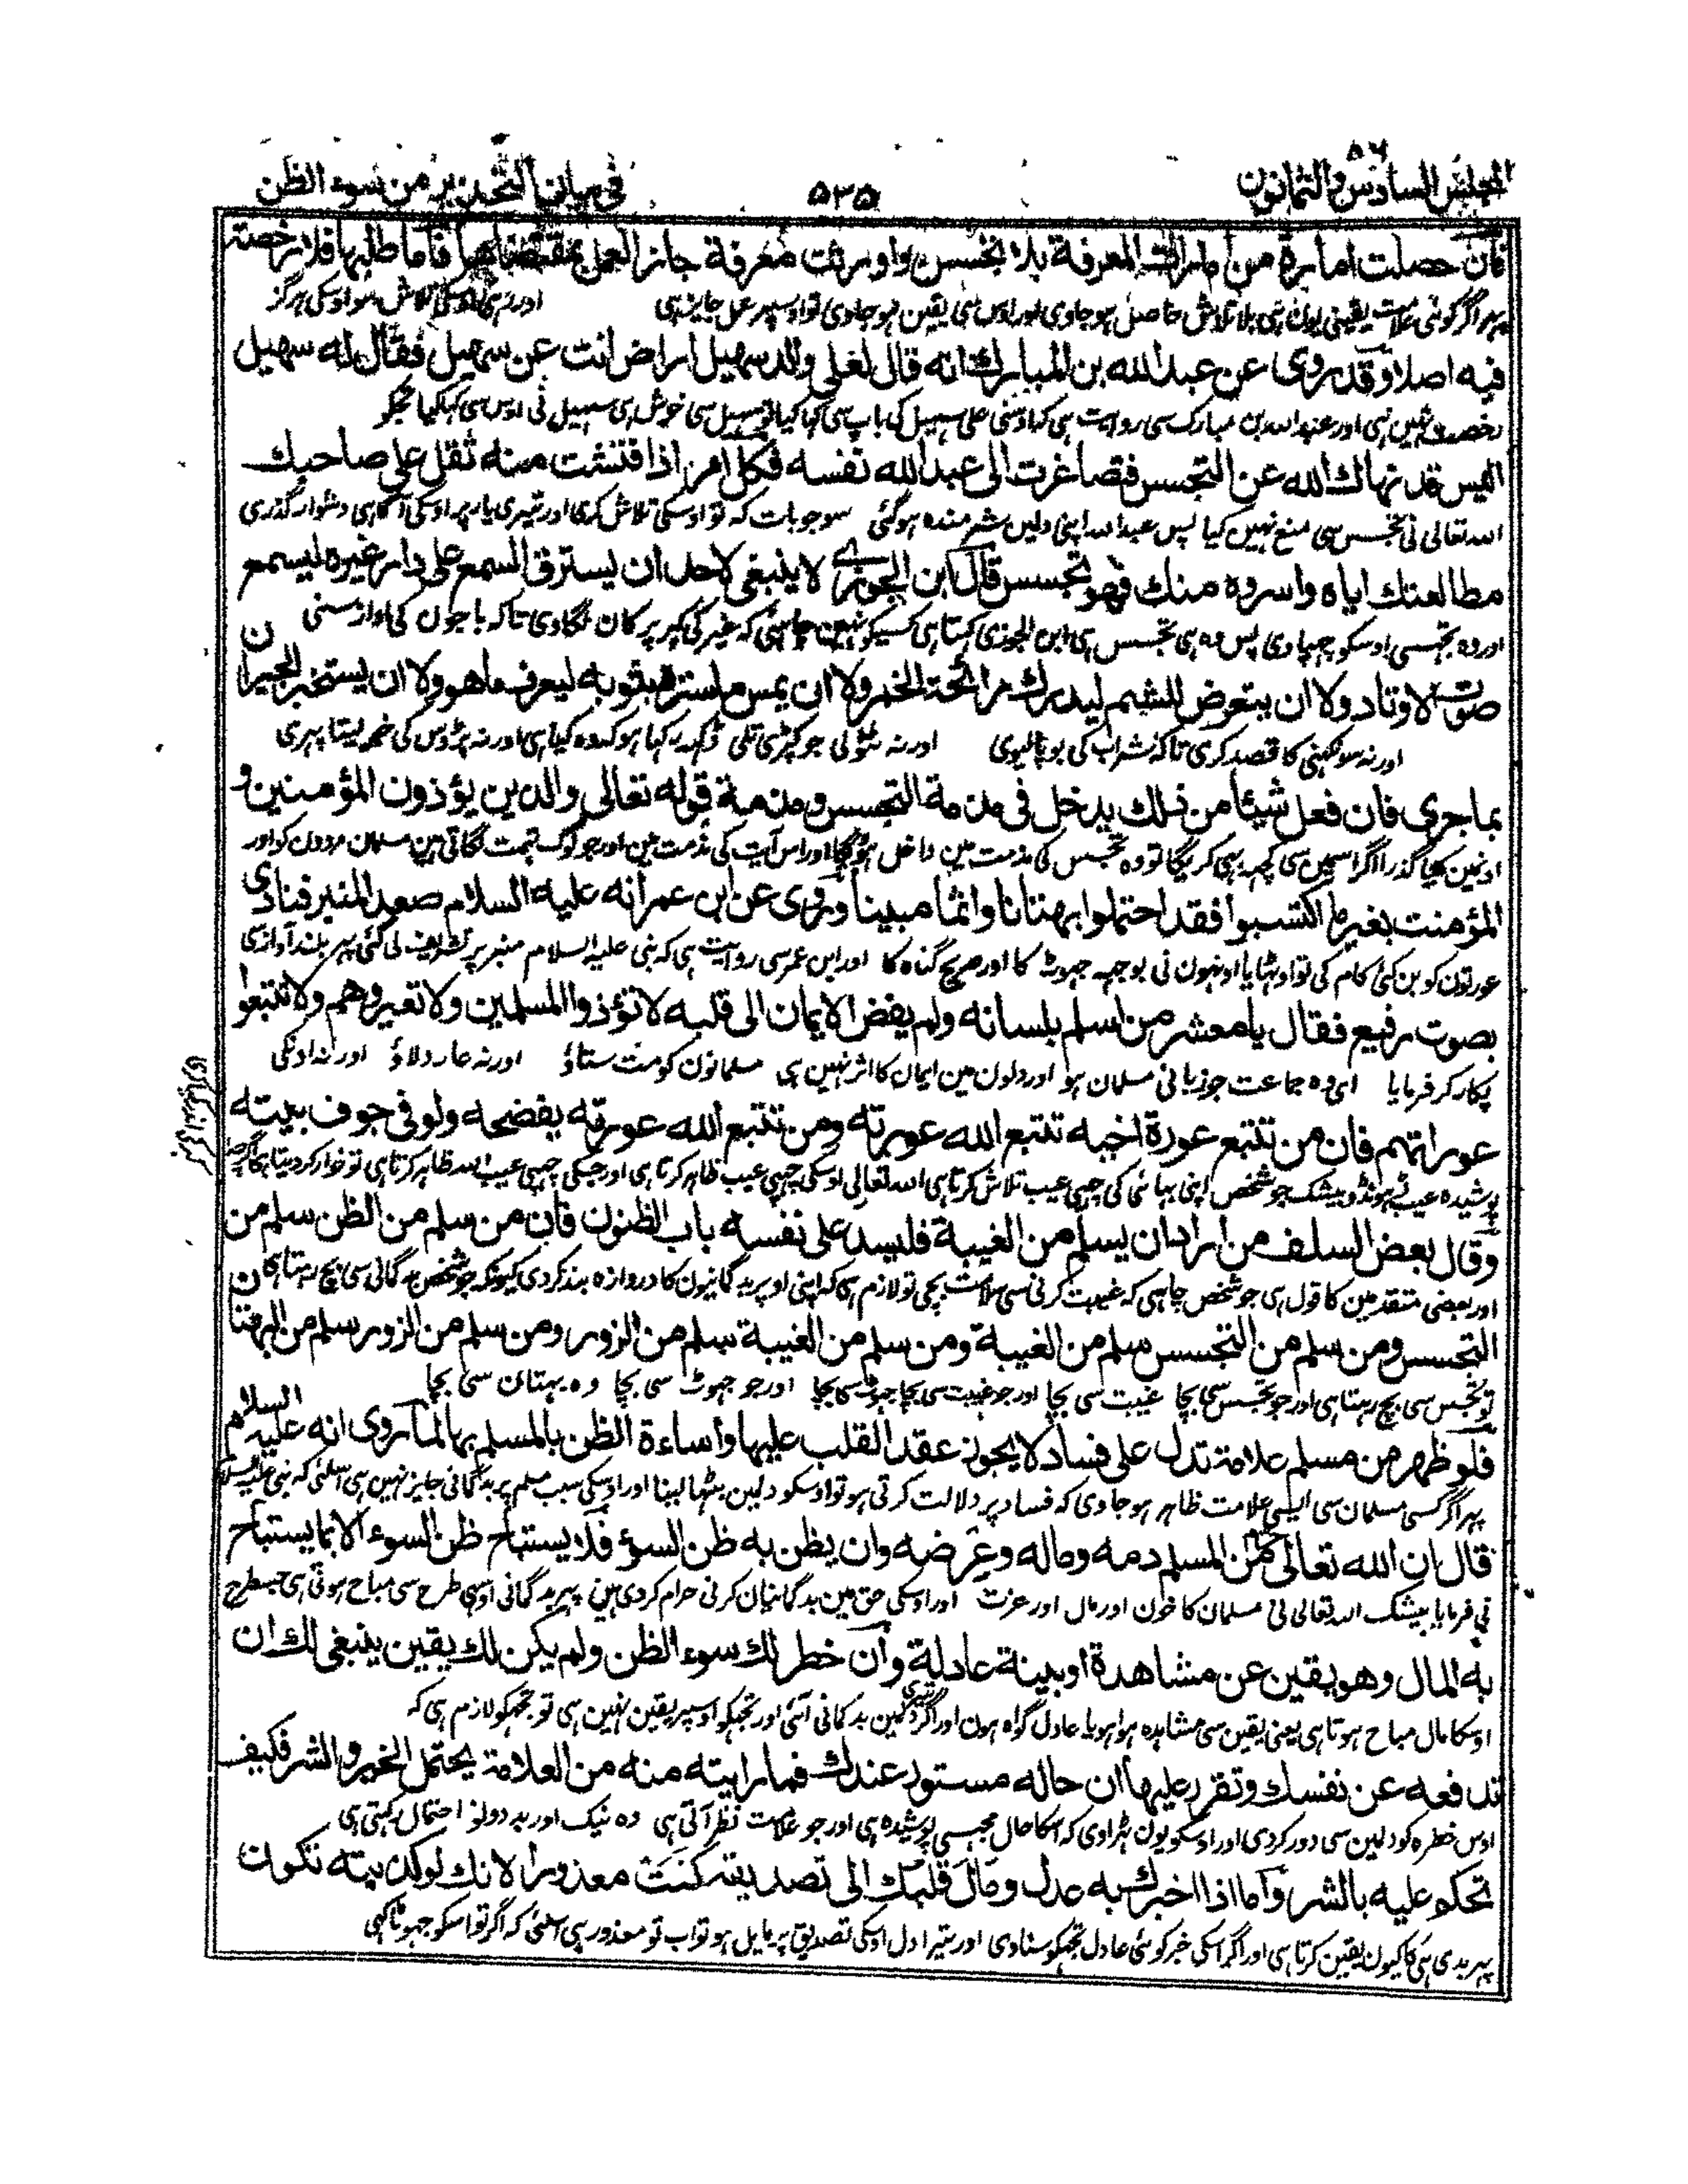 المجلس السادس والثمانون ٥٣٥ في بيان التحذير من سوء الظن
فان حصلت امارة من امارات المعرفة بلا تجسس واورثت معرفة جاز العمل بمقتضاها فاما طلبها فلا رخصة
پہر اگر کوئی علامت یقینی یون ہی بلا تلاش حاصل ہو جاوی اور اوس سی یقین ہو جاوی تو اوسپر عمل جایز ہی اور نہ اوسکی تلاش سو اوسکی ہرگز
فيه اصلا وقد روى عن عبد الله بن المبارك انه قال لعلى والد سهيل اراض انت عن سهيل فقال له سهيل
رخصت نہین ہی اور عبد اللہ بن مبارک سی روایت ہی کہ اوسنی علی سہیل کی باپ سی کہا کیا تو سہیل سی خوش ہی سہیل نی اوس سی کہا کیا تجکو
اليس قد نهاك الله عن التجسس فتصاغرت الى عبد الله نفسه فكل امر اذا فتشت منه ثقل على صاحبك
اللہ تعالی نی تجسس سی منع نہین کیا پس عبد اللہ اپنی دلین شرمندہ ہوگئی سو جو بات کہ تو اوسکی تلاش کری اور تیری یار پر اوسکی آگاہی دشوار گذری
مطالعتك اياه واسروه منك فهو تجسس قال ابن الجوزى لا ينبغى لاحد ان يسترق السمع على دار غيره ليسمع
اور وہ تجہسی اوسکو چہپا وی پس وہ ہی تجسس ہی ابن الجوزی کہتا ہی کسیکو نہین چاہئی کہ غیر کی گہر پر کان لگاوی تاکہ باجون کی اواز سنی
صوت الاوتاد ولا ان يتعرض للشم ليدرك رائحة الخمر ولا ان يمس ما ستره بثوبه ليعرف ما هو ولا ان يستخبر الجيران
اور نہ سونگہنی کا قصد کری تا کہ شراب کی بو پالیوی اور نہ ٹٹولی جو کپڑی تلی ڈہک رکہا ہو کہ وہ کیا ہی اور نہ پڑوس کی خبر لیتا پہری
بما جرى فان فعل شيئا من ذلك يدخل فى مذمة التجسس ومذمة قوله تعالى والذين يؤذون المؤمنين و
اونہین کیا گذرا اگر اسمین سی کچہہ بہی کریگا تو وہ تجسس کی مذمت مین داخل ہوگیا اور اس آیت کی مذمت مین اور جو لوگ تہمت لگاتی ہین مسلمان مردون کو اور
المؤمنت بغير ما اكتسبوا فقد احتملوا بهتانا واثما مبينا وروى عن ابن عمر انه عليه السلام صعد المنبر فنادى
عورتون کو بن کئی کام کی تو اوٹہایا اونہون نی بوجہہ جہوٹہ کا اور صریح گناہ کا اور ابن عمر سی روایت ہی کہ نبی علیہ السلام منبر پر تشریف لی گئی پہر بلند آواز سی
بصوت رفيع فقال يا معشر من اسلم بلسانه ولم يفض الايمان الى قلبه لا تؤذوا المسلمين ولا تعيروهم ولا تتبعوا
پکار کر فرمایا ای وہ جماعت جو زبانی مسلمان ہو اور دلون مین ایمان کا اثر نہین ہی مسلمانون کو مت ستاؤ اور نہ عار دلاؤ اور نہ اونکی
عوراتهم فان من تتبع عورة اخيه تتبع الله عورته ومن تتبع الله عورته يفضحه ولو فى جوف بيته
پوشیدہ عیب ڈہونڈو بیشک جو شخص اپنی بہائی کی چہپی عیب تلاش کرتا ہی اللہ تعالی اوسکی چہپی عیب ظاہر کرتا ہی اور جسکی چہپی عیب اللہ ظاہر کرتا ہی تو خوار کر دیتا ہی اگرچہ
وقال بعض السلف من اراد ان يسلم من الغيبة فليسد على نفسه باب الظنون فان من سلم من الظن سلم من
اور بعضی متقدمین کا قول ہی جو شخص چاہی کہ غیبت کرنی سی سلامت بچی تو لازم ہی کہ اپنی اوپر بدگمانیون کا دروازہ بند کر دی کیونکہ جو شخص بدگمانی سی بچ رہتا ہی
التجسس ومن سلم من التجسس سلم من الغيبة ومن سلم من الغيبة سلم من الزور ومن سلم من الزور سلم من البهتان
تو تجسس سی بچ رہتا ہی اور جو تجسس سی بچا غیبت سی بچا اور جو غیبت سی بچا جہوٹ سی بچا اور جو جہوٹ سی بچا وہ بہتان سی بچا
فلو ظهر من مسلم علامة تدل على فساد لا يجوز عقد القلب عليها واساءة الظن بالمسلم بها لما روى انه عليه السلام
پہر اگر کسی مسلمان سی ایسی علامت ظاہر ہو جاوی کہ فساد پر دلالت کرتی ہو تو اوسکو دلین بٹہا لینا اور اوسکی سبب مسلم پر بدگمانی جایز نہین ہی اسلئی کہ نبی علیہ السلام
قال ان الله تعالى حرم من المسلم دمه وماله وعرضه وان يظن به ظن السوء فلا يستباح ظن السوء الا بما يستباح
نی فرمایا بیشک اللہ تعالی نی مسلمان کا خون اور مال اور عزت اور اوسکی حق مین بدگمانیان کرنی حرام کر دی ہین پہر بدگمانی اوسی طرح سی مباح ہوتی ہی جسطرح
به المال وهو يقين عن مشاهدة او بينة عادلة وان خطر لك سوء الظن ولم يكن لك يقين ينبغى لك ان
اوسکا مال مباح ہوتا ہی یعنی یقین سی مشاہدہ ہوا ہو یا عادل گواہ ہون اور اگر تیری دلمین بدگمانی آئی اور تجکو اوسپر یقین نہین ہی تو تجہکو لازم ہی کہ
تدفعه عن نفسك وتقرر عليها ان حاله مستور عندك فما رايته منه من العلامة يحتمل الخير والشر فكيف
اوس خطرہ کو دلین سی دور کر دی اور اوسکو یون ٹہراوی کہ اسکا حال مجہسی پوشیدہ ہی اور جو علامت نظر آتی ہی وہ نیک اور بد دونو احتمال رکہتی ہی
تحكم عليه بالشر واما اذا اخبرك به عدل ومال قلبك الى تصديقه كنت معذورا لانك لو كذبته تكون
پہر بدی ہی کا کیون یقین کرتا ہی اور اگر اسکی خبر کوئی عادل تجہکو سناوی اور تیرا دل اوسکی تصدیق پر مایل ہو تو اب تو معذور ہی اسلئی کہ اگر تو اسکو جہوٹا کہی